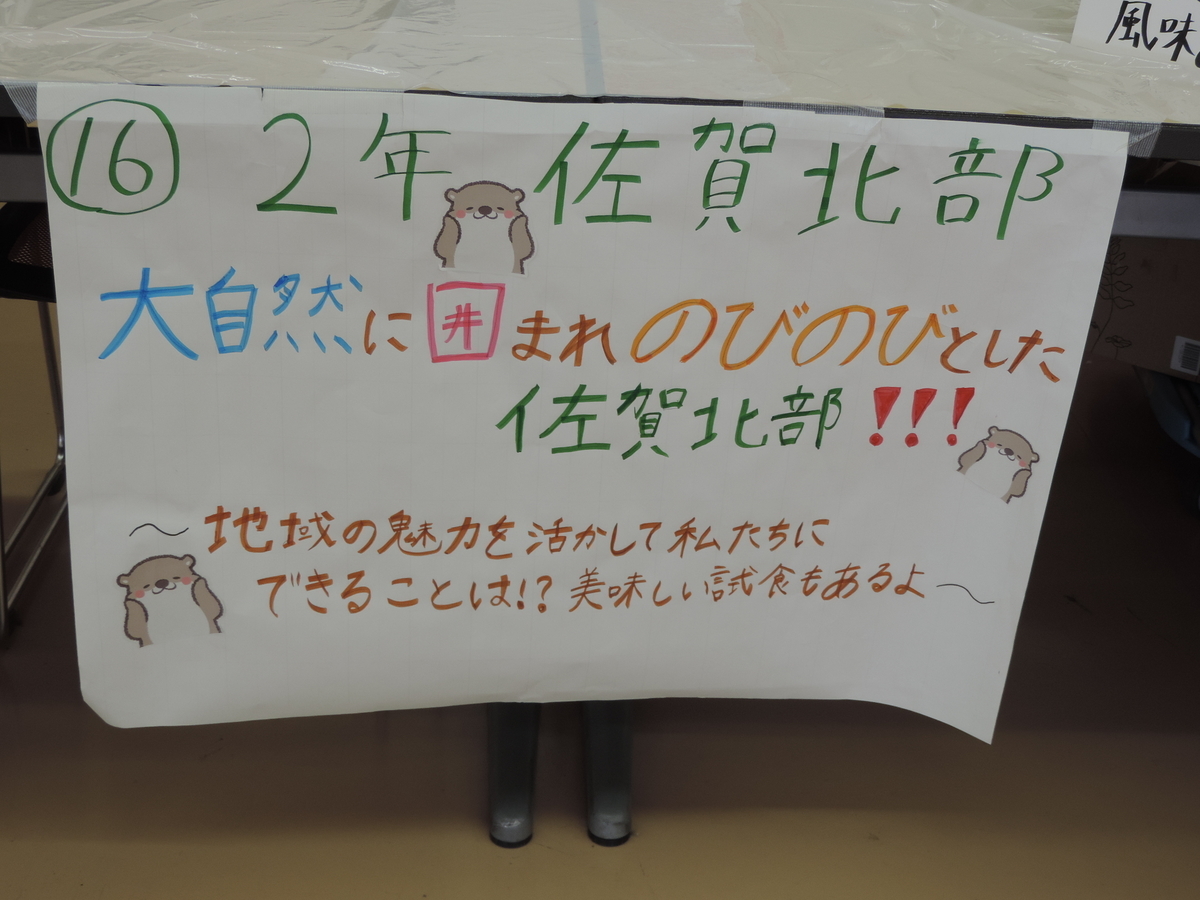 風味
⑯ 2年 佐賀北部
大自然に囲まれのびのびとした
佐賀北部!!!
～地域の魅力を活かして私たちに
できることは!?美味しい試食もあるよ～